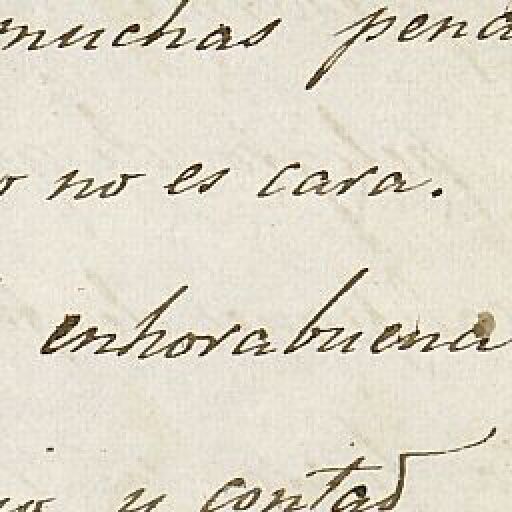 muchas pena
no es cara.
enhorabuena
y contad